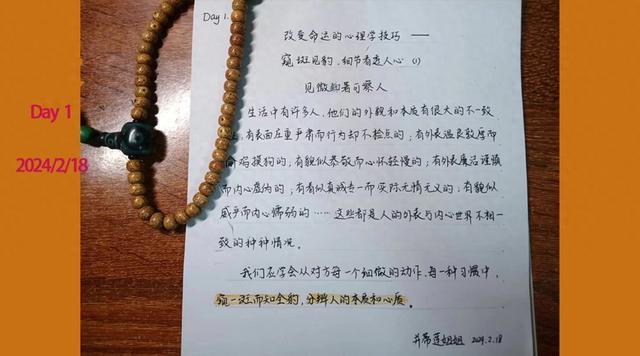 Day 1.
改变命运的心理学技巧 ——
窥斑见豹,细节看透人心 (1)
见微知著可察人
生活中有许多人,他们的外貌和本质有很大的不一致
,有表面庄重严肃而行为却不检点的;有外表温良敦厚而
偷鸡摸狗的;有貌似恭敬而心怀轻慢的;有外表廉洁谨慎
而内心虚伪的;有看似真诚专一而实际无情无义的;有貌似
威严而内心懦弱的……这些都是人的外表与内心世界不相一
致的种种情况。
我们应学会从对方每一个细微的动作、每一种习惯中,
窥一斑而知全豹,分辨人的本质和心质。
并蒂莲姐姐 2024.2.18
Day 1
2024/2/18